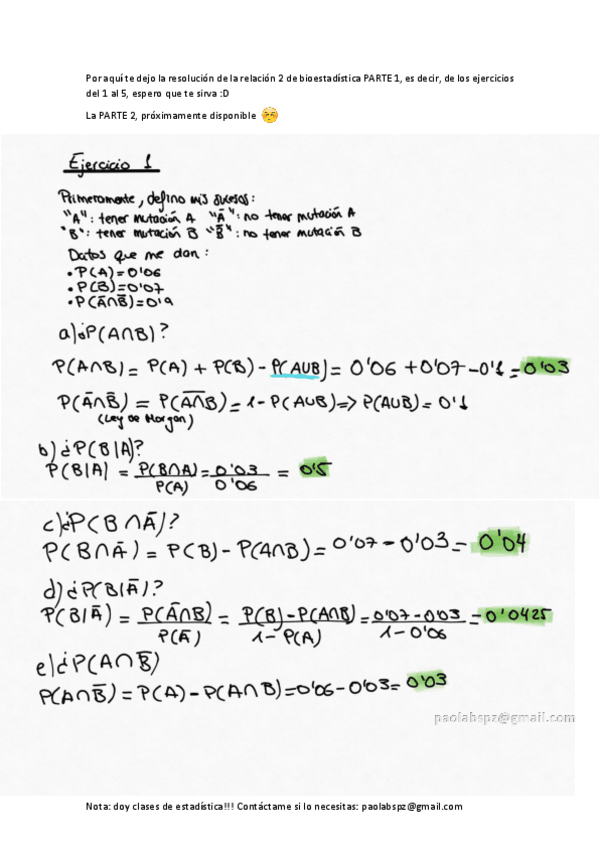 Por aquí te dejo la resolución de la relación 2 de bioestadística PARTE 1, es decir, de los ejercicios
del 1 al 5, espero que te sirva :D
La PARTE 2, próximamente disponible
Ejercicio 1
Primeramente, defino mis sucesos:
"A": tener mutación A "Ā": no tener mutación A
"B": tener mutación B "B̄": no tener mutación B
Datos que me dan:
• P(A)=0'06
• P(B)=0'07
• P(Ā∩B̄)=0'9
a) ¿P(A∩B)?
P(A∩B) = P(A) + P(B) - P(AUB) = 0'06 + 0'07 - 0'1 = 0'03
P(Ā∩B̄) = P(A̅∩̅B̅) = 1 - P(AUB) => P(AUB) = 0'1
(Ley de Morgan)
b) ¿P(B|A)?
P(B|A) = P(B∩A)/P(A) = 0'03/0'06 = 0'5
c) ¿P(B∩Ā)?
P(B∩Ā) = P(B) - P(A∩B) = 0'07 - 0'03 = 0'04
d) ¿P(B|Ā)?
P(B|Ā) = P(Ā∩B)/P(Ā) = P(B)-P(A∩B)/1-P(A) = 0'07-0'03/1-0'06 = 0'0425
e) ¿P(A∩B̄)
P(A∩B̄) = P(A) - P(A∩B) = 0'06 - 0'03 = 0'03
paolabspz@gmail.com
Nota: doy clases de estadística!!! Contáctame si lo necesitas: paolabspz@gmail.com